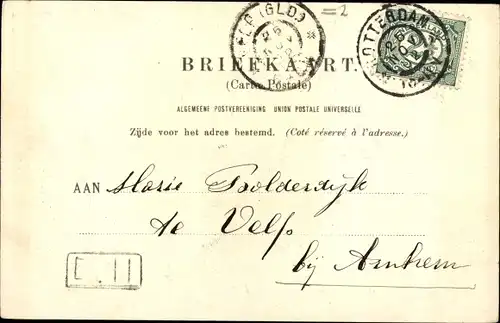 =2
(GLD.)
ROTTERDAM
BRIEFKAART.
(Carte Postale)
ALGEMEENE POSTVEREENIGING UNION POSTALE UNIVERSELLE
Zijde voor het adres bestemd. (Coté réservé à l'adresse.)
AAN Marie Bolderdijk
te Velp
bij Arnhem